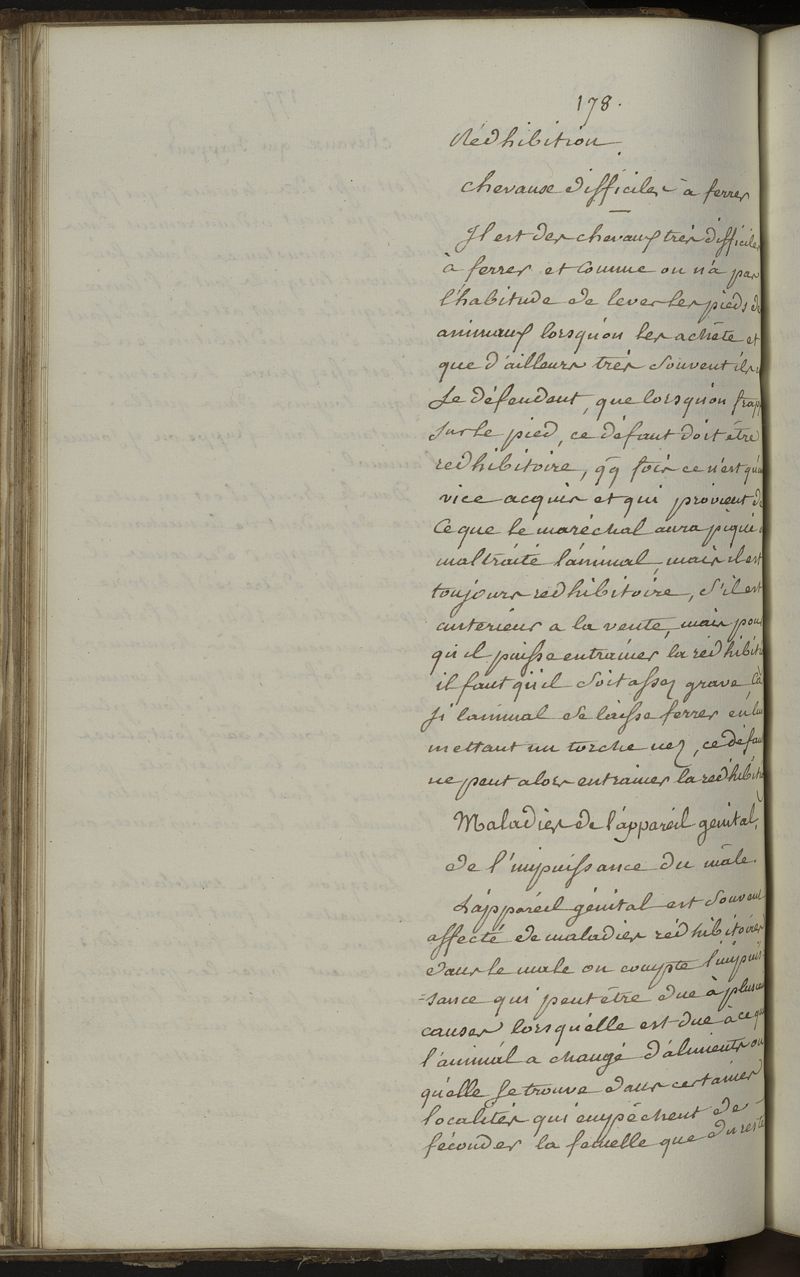 178.
Rédhibition
chevause difficiles à ferrer
Il est des chevaux très difficiles
à ferrer et comme on n'a pas
l'habitude de lever les pieds de
animaux lorsqu'on les achète et
que d'ailleurs très souvent ils
se défendent, que lorsqu'on frapp
sur le pied, ce défaut doit être
redhibitoire, qq fois ce n'est qu'un
vice acquis et qui provient de
ce que le maréchal aura piqué
maltraité l'animal mais il est
toujours redhibitoire, s'il est
anterieur a la vente, mais pour
qu'il puisse entrainer la rédhibiti
il faut qu'il soit assez grave, là
si l'animal se laisse ferrer en lui
mettant un torche nez, ce défau
ne peut alors entrainer la redhibiti
Maladies de l'appareil genital,
de l'impuissance du mâle.
L'appareil génital est souvent
affecté de maladies rédhibitoires
dans le male on compte l'impuis-
=sance qui peut être due à plusieu
causes lorsqu'elle est due à ce que
l'animal a changé d'aliments ou
qu'elle se trouve dans certaines
localités qui empêchent de
féconder la femelle que du reste